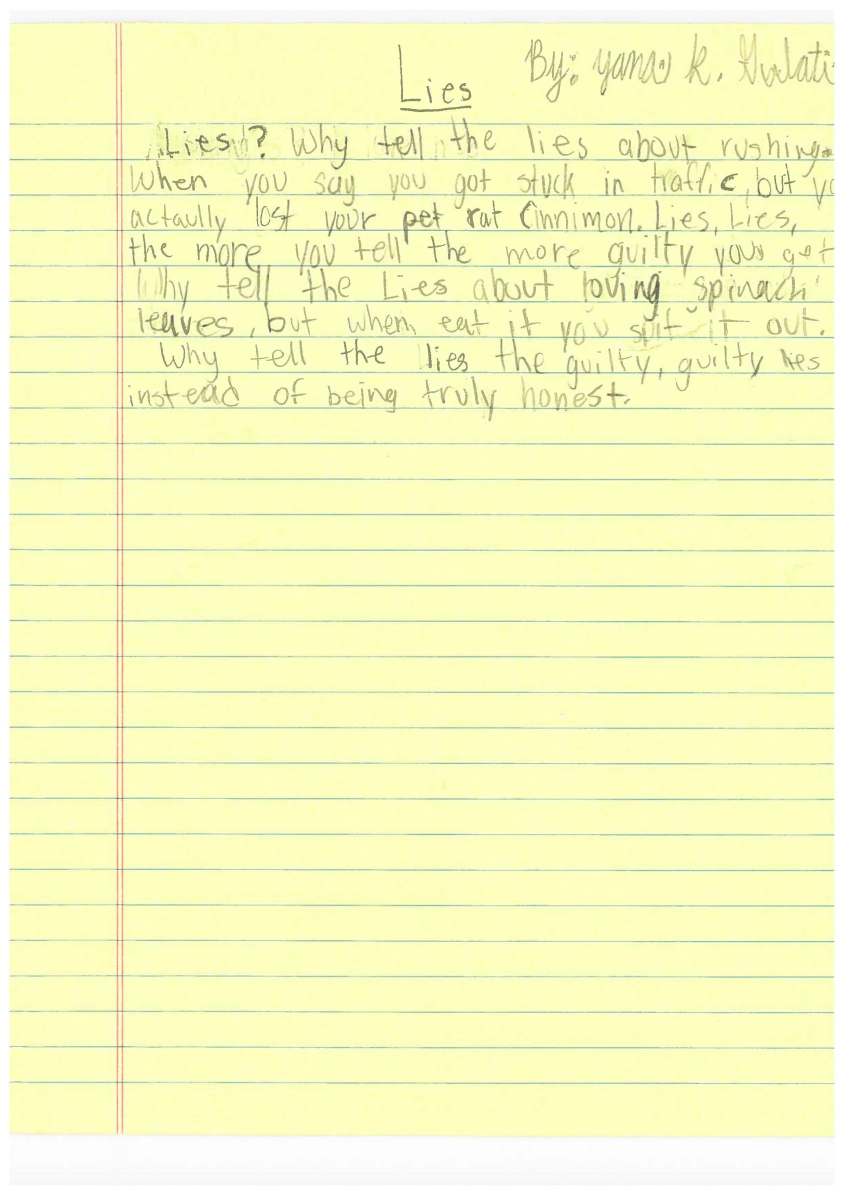 Lies By: yana k. Gulati
Lies? Why tell the lies about rushing.
When you say you got stuck in traffic, but yo
actaully lost your pet rat Cinnimon. Lies, Lies,
the more you tell the more guilty you get
Why tell the Lies about loving spinach
leaves, but when eat it you spit it out.
Why tell the lies the guilty, guilty lies
instead of being truly honest.